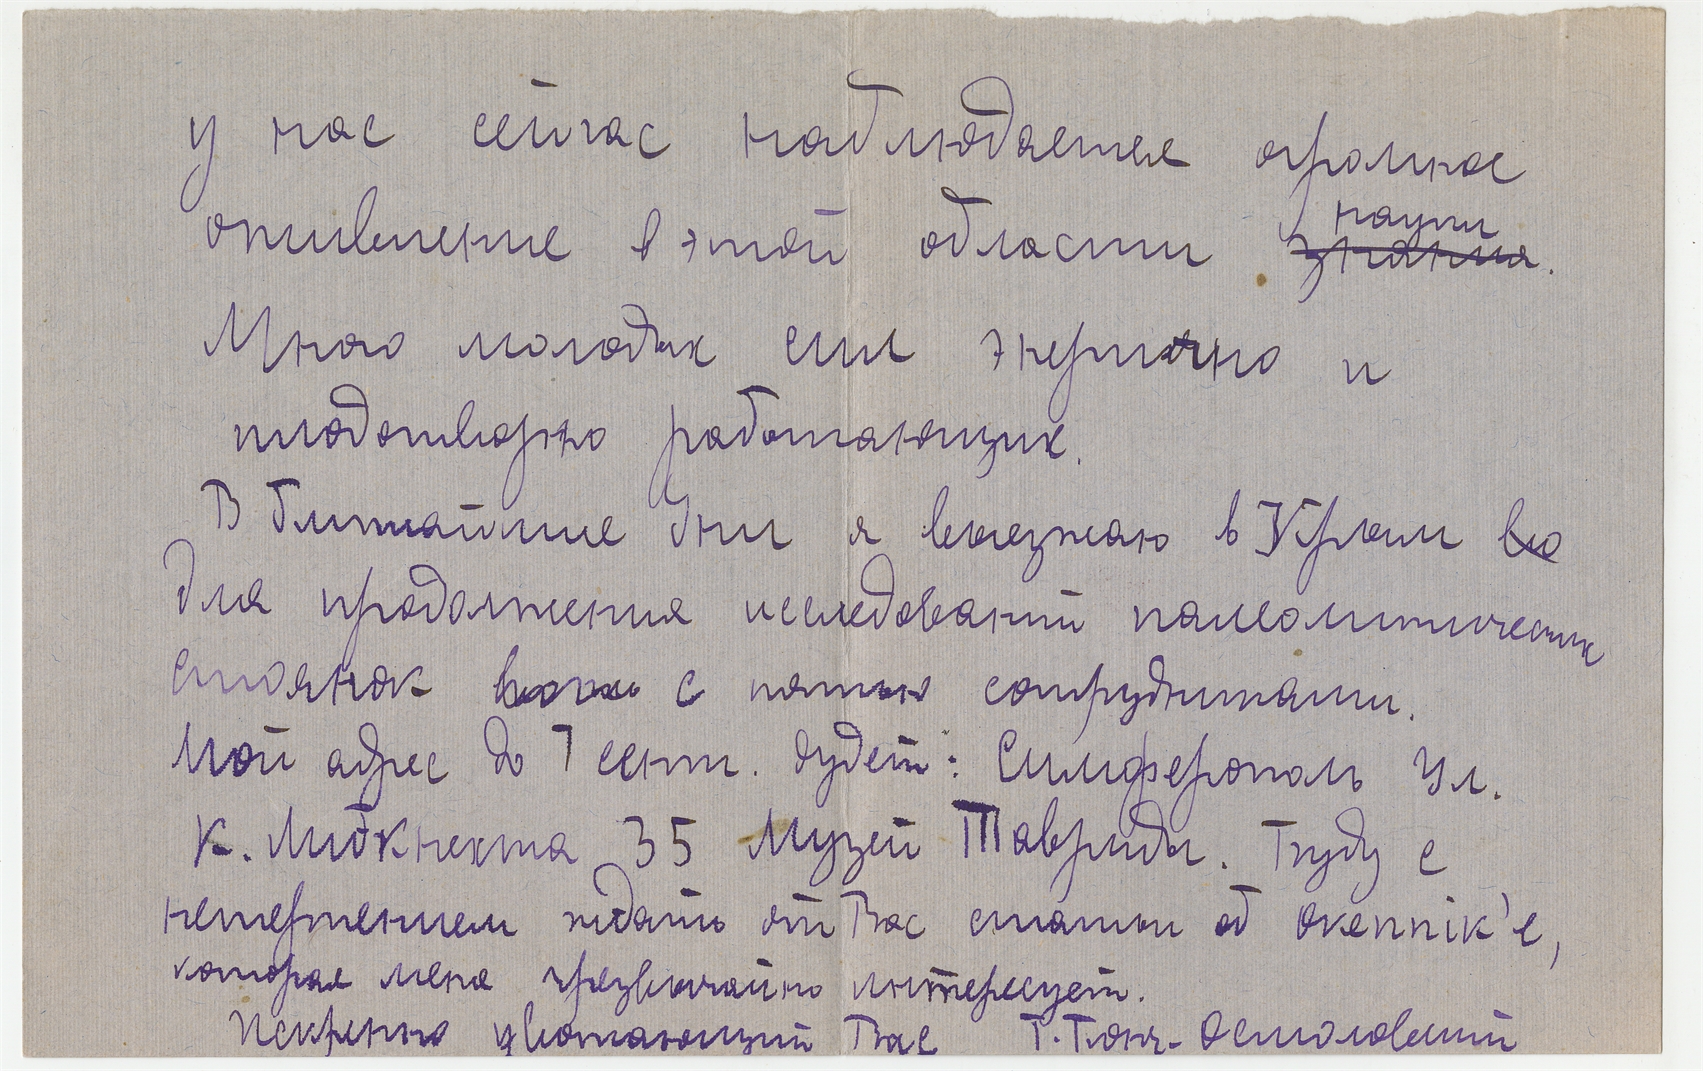 у нас сейчас наблюдается огромное
оживление в этой области науки
знания.
Много молодых сил энергично и
плодотворно работающих.
В ближайшие дни я выезжаю в Крым
для продолжения исследований палеолитических
стоянок с пятью сотрудниками.
Мой адрес до 1 сент. будет: Симферополь Ул.
К. Либкнехта 35 Музей Тавриды. Буду с
нетерпением ждать от Вас статьи об Økennik'е,
которая меня чрезвычайно интересует.
Искренно уважающий Вас Г. Бонч-Осмоловский